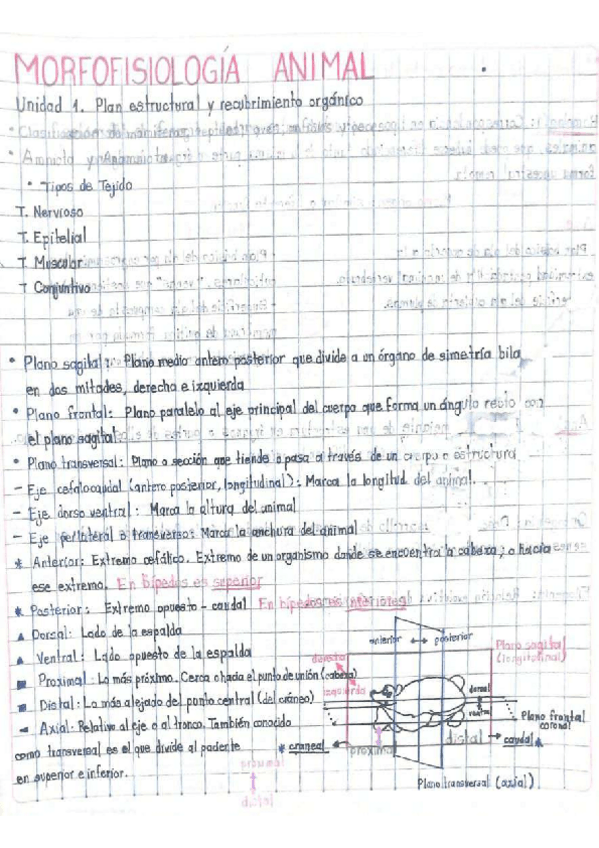 MORFOFISIOLOGÍA ANIMAL
Unidad 1. Plan estructural y recubrimiento orgánico
• Tipos de Tejido
T. Nervioso
T. Epitelial
T. Muscular
T Conjuntivo
• Plano sagital: Plano medio antero posterior que divide a un órgano de simetría bila
en dos mitades, derecha e izquierda
• Plano frontal: Plano paralelo al eje principal del cuerpo que forma un ángulo recto con
el plano sagital
• Plano transversal: Plano o sección que tiende o pasa a través de un cuerpo o estructura
- Eje cefalocaudal (antero posterior, longitudinal): Marca la longitud del animal.
- Eje dorso ventral: Marca la altura del animal
- Eje perlateral o transverso: Marca la anchura del animal
* Anterior: Extremo cefálico. Extremo de un organismo donde se encuentra la cabeza; o hacia
ese extremo. En bípedos es superior
* Posterior: Extremo opuesto - caudal En bípedos es inferior
▲ Dorsal: Lado de la espalda
▲ Ventral: Lado opuesto de la espalda
■ Proximal: Lo más próximo. Cerca o hacia el punto de unión (cabeza)
■ Distal: Lo más alejado del punto central (del cráneo)
Axial: Relativo al eje o al tronco. También conocido
como transversal es el que divide al paciente
en superior e inferior.
anterior ↔ posterior
Plano sagital
(longitudinal)
derecho
izquierda
dorsal
ventral
Plano frontal
coronal
* craneal
proximal
distal
caudal
proximal
distal
Plano transversal (axial)